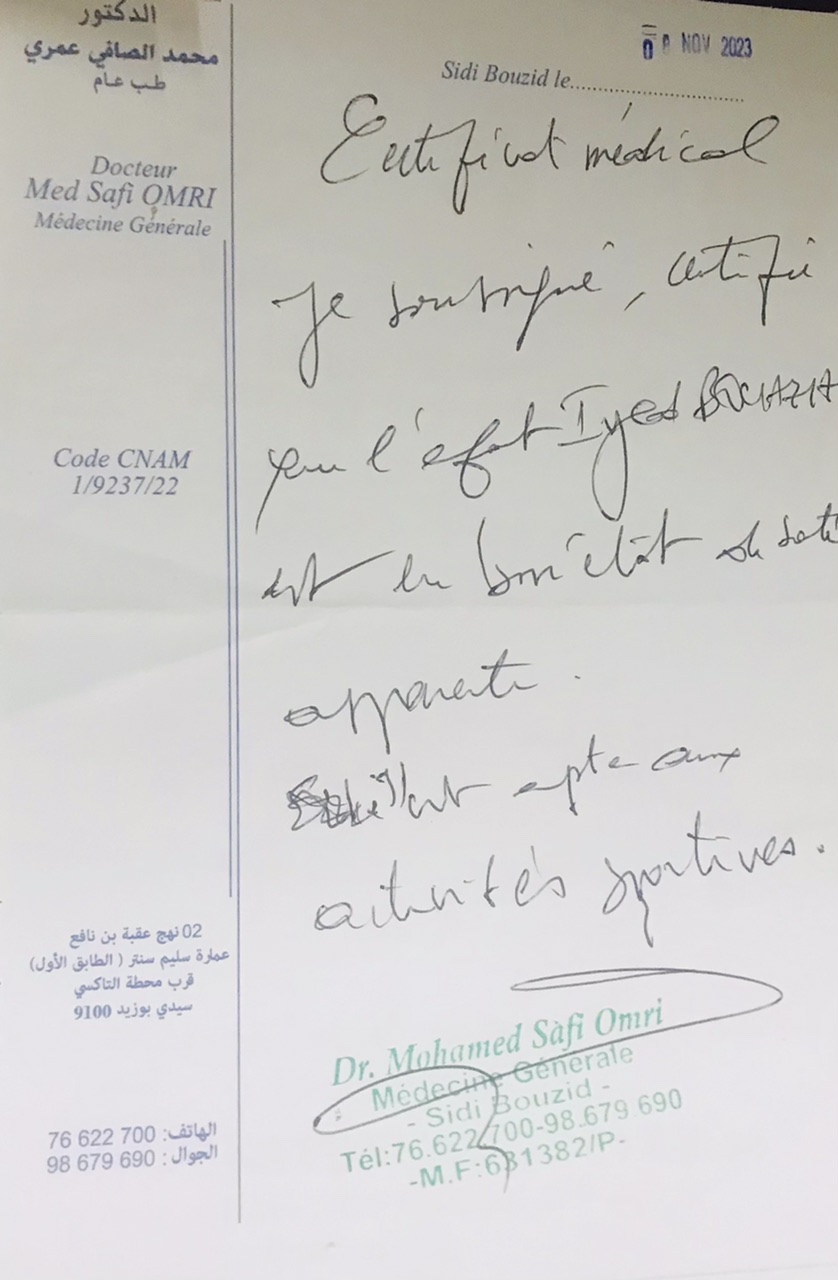 الدكتور
محمد الصافي عمري
طب عام
Docteur
Med Safi OMRI
Médecine Générale
Code CNAM
1/9237/22
02 نهج عقبة بن نافع
عمارة سليم سنتر ( الطابق الأول)
قرب محطة التاكسي
سيدي بوزيد 9100
الهاتف: 700 622 76
الجوال : 690 679 98
8 NOV 2023
Sidi Bouzid le
Certificat médical
Je soussigné, certifie
que l'enfant Iyed
est en bon état de santé
apparente.
il est apte aux
activités sportives.
Dr. Mohamed Safi Omri
Médecine Générale
- Sidi Bouzid -
Tél:76.622.700-98.679 690
-M.F:631382/P-